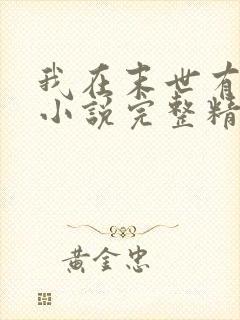 我在末世有
小说完整精
黄金忠